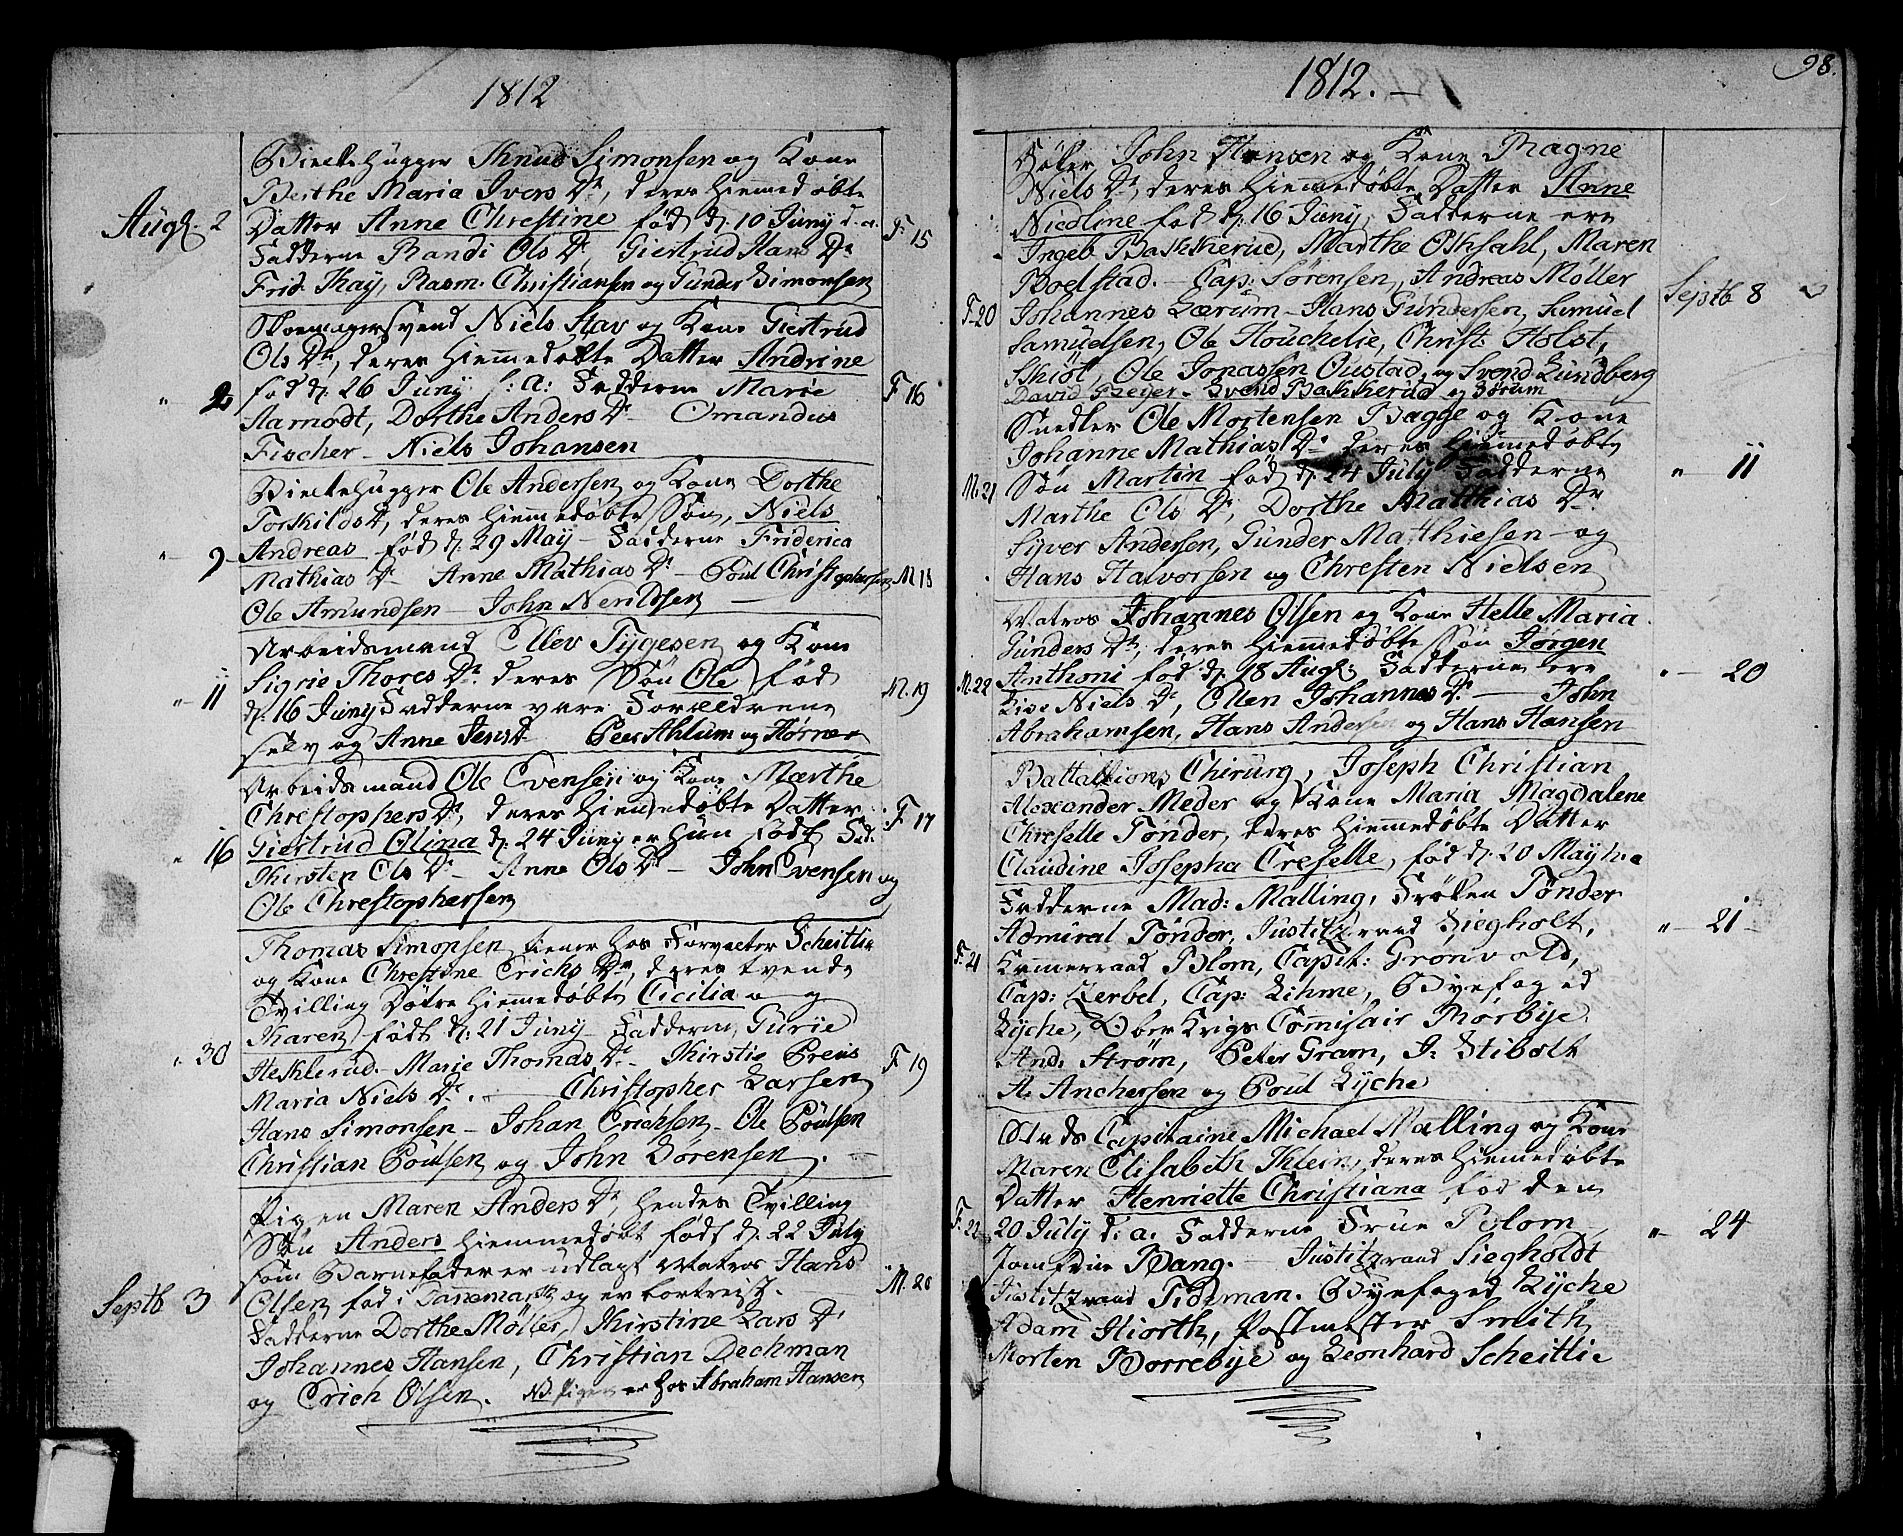 1812
Bielkehugger Knud Simonsen og Kone
Berthe Maria Ivers Dr, deres hiemmedøbte
Augs. 2 Datter Anne Chrestine fød d. 10 Juny d. a. F. 15
Fadderne Randi Ols Dr, Giertrud Hans Dr
Frid. Kay, Rasm. Christiansen og Gunder Simonsen
Skomagersvend Niels Slav og Kone Giertrud
Ols Dr, deres hiemmedøbte Datter Andrine
" 2 fød d. 26 Juny s: a: Fadderne Marie F 16
Aamodt, Dorthe Anders Dr Omandus
Fischer - Niels Johansen
Bielkehugger Ole Andersen og Kone Dorthe
Torkildsdr, deres hiemmedøbte Søn, Niels
" 9 Andreas - fød d. 29 May - Fadderne Friderica
Mathias Dr Anne Mathias Dr - Poul Christophersen M 18
Ole Amundsen - John Nerildsen
Arbeidsmand Ellev Tygesen og Kone
Sigrie Thores Dr. deres Søn Ole fød
" 11 d. 16 Juny Fadderne vare Forældrene M. 19
selv og Anne Jensdr Peer Ahlum og Hørner
Arbeidsmand Ole Evensen og Kone Marthe
Christophers Dr, deres hiemmedøbte Datter F 17
" 16 Giertrud Olina d. 24 Juny er hun født Fad:
Kirsten Ols Dr - Anne Ols Dr - John Evensen og
Ole Chrestophersen
Thomas Simonsen tiener hos Forvalter Scheitlie
og Kone Chrestine Erichs Dr, deres tvende
Tvilling Døtre hiemmedøbte Cicilia og
Karen født d. 21 Juny - Fadderne, Gurie
" 30 Heklerud. Marie Thomas Dr - Kirstie Preus F 19
Maria Niels Dr. - Christopher Larsen
Hans Simonsen - Johan Erichsen - Ole Poulsen
Christian Poulsen og John Sørensen.
Pigen Maren Anders Dr, hendes Tvilling
Søn Anders hiemmedøbt født d. 22 July
som Barnefader er udlagt Matros Hans
Septb 3 Olsen fød i Danemark og er bortreist. M. 20
Fadderne Dorthe Møller, Kirstine Lars Dr
Johannes Hansen, Christian Dechman
og Erich Olsen. NB. Pigen er hos Abraham Hansen
1812. 98.
John Hansen og Kone Ragne
Niels Dr, deres hiemmedøbte Datter Anne
Nicoline fød d. 16 Juny, Fadderne ere
Ingeb Bakkerud, Marthe Ohlsahl, Maren
Boelstad. - Cap: Sørensen, Andreas Møller Septb 8
F. 20 Johannes Lærum - Hans Gundersen, Samuel
Samuelsen, Ole Houchelie, Christ: Holst,
Skiøt, Ole Jonassen Oustad, og Svend Lundberg
David Beyer - Svend Bakkerud og Sørum
Snedker Ole Mortensen Bagge og Kone
Johanne Mathias Dr deres hiemmedøbte
M. 21 Søn Martin fød d. 24 July Fadderne " 11
Marthe Ols Dr, Dorthe Matthias Dr
Syver Andersen, Gunder Mathiesen - og
Hans Halvorsen og Chresten Nielsen
Matros Johannes Olsen og Kone Helle Maria
Gunders Dr, deres hiemmedøbte Søn Jørgen
M. 22 Anthoni fød d. 18 Augs. Fadderne ere " 20
Lise Niels Dr, Ellen Johannes Dr - John
Abrahamsen, Hans Andersen og Hans Hansen
Battallions Chirurg, Joseph Christian
Alexander Meder og Kone Maria Magdalene
Chreselle Tønder, deres hiemmedøbte Datter
Claudine Josepha Creselle, fød d. 20 May h: a
Fadderne Mad: Malling, Frøken Tønder
Admiral Tønder, Justitzraad Ziegholt, " 21
F. 21 Kamerraad Blom, Capit: Grønvold,
Cap: Zerbel, Cap: Lihme, Byefoged
Lyche, Ober Krigs Commisair Rørbye.
And: Strøm, Peter Gram, J. Stibolt
A. Anchersen og Poul Lyche
Capitaine Michael Malling og Kone
Maren Elisabeth Klein, deres hiemmedøbte
Datter Henriette Christiana fød den
F. 22 20 July d. a. Fadderne Frue Blom - " 24
Jomfrue Bang. Justitzraad Siegholdt
Justitzraad Tideman. Byefoged Lyche
Adam Hiorth, Postmester Smith,
Morten Borrebye og Leonhard Scheitlie